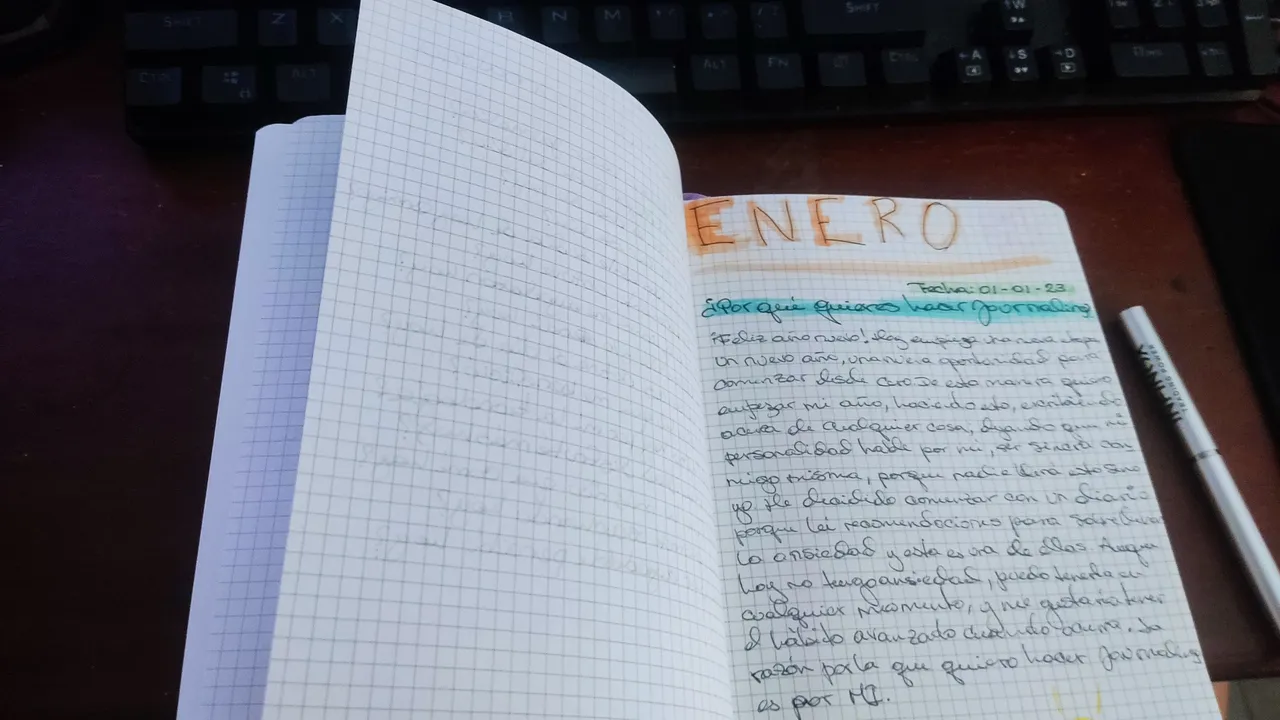 SHIFT Z X B N M SHIFT
CTRL ALT ALT FN CTRL
W
A S D
ENERO
Fecha: 01-01-23
¿Por qué quieres hacer Journaling
¡Feliz año nuevo! Hoy empieza una nueva etapa
un nuevo año, una nueva oportunidad para
comenzar desde cero. De esta manera quiero
empezar mi año, haciendo esto, escribiendo
acerca de cualquier cosa, dejando que mi
personalidad hable por mi, ser sincera con
migo misma, porque nadie leirá esto sino
yo. He decidido comenzar con un diario
porque leí recomendaciones para sobrellevar
la ansiedad y esta es una de ellas. Aunque
hoy no tengo ansiedad, puedo tenerla en
cualquier momento, y me gustaría tener
el hábito avanzado cuando ocurra. La
razón por la que quiero hacer Journaling
es por MI.